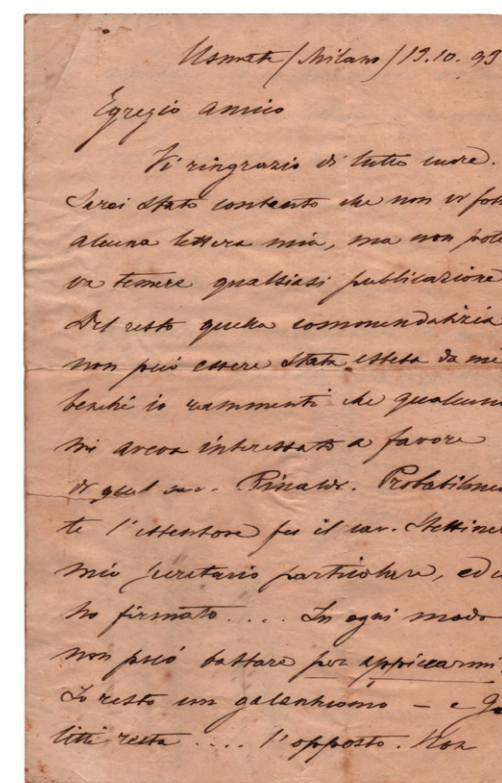 Usmate (Milano) 19.10.93
Egregio amico
Vi ringrazio di tutto cuore.
Sarei stato contento che non vi foss
alcuna lettera mia, ma non pote
va temere qualsiasi publicazione
Del resto quella commendatizia
non può essere stata estesa da me
benchè io rammenti che qualcuno
mi aveva interessato a favore
di quel Rinaldi. Probabilmen
te l'estensore fu il cav.
mio secretario particolare, ed i
ho firmato.... In ogni modo
non può bastare per appiccarmi.
Io resto un galantuomo – e Gio
litti resta.... l'opposto. Non